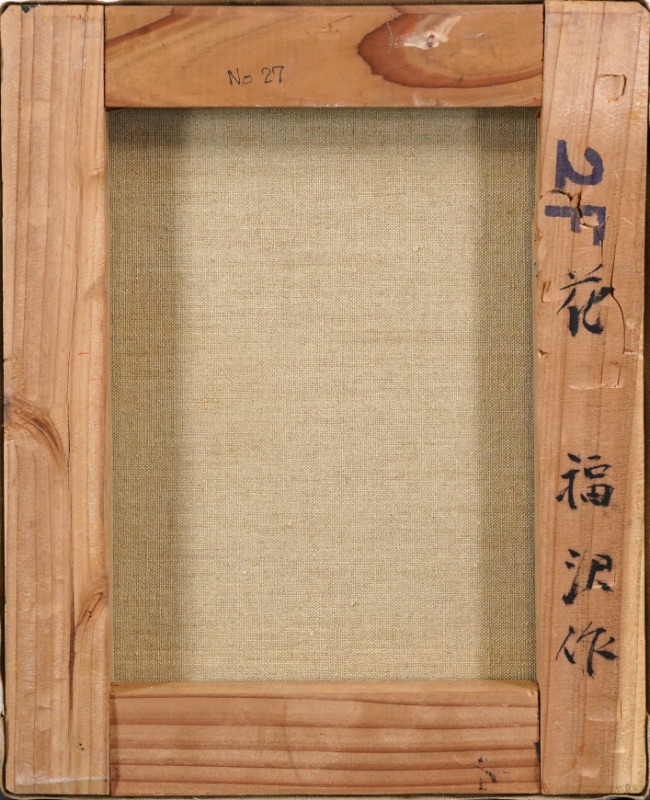 No 27
2F
花
福沢作